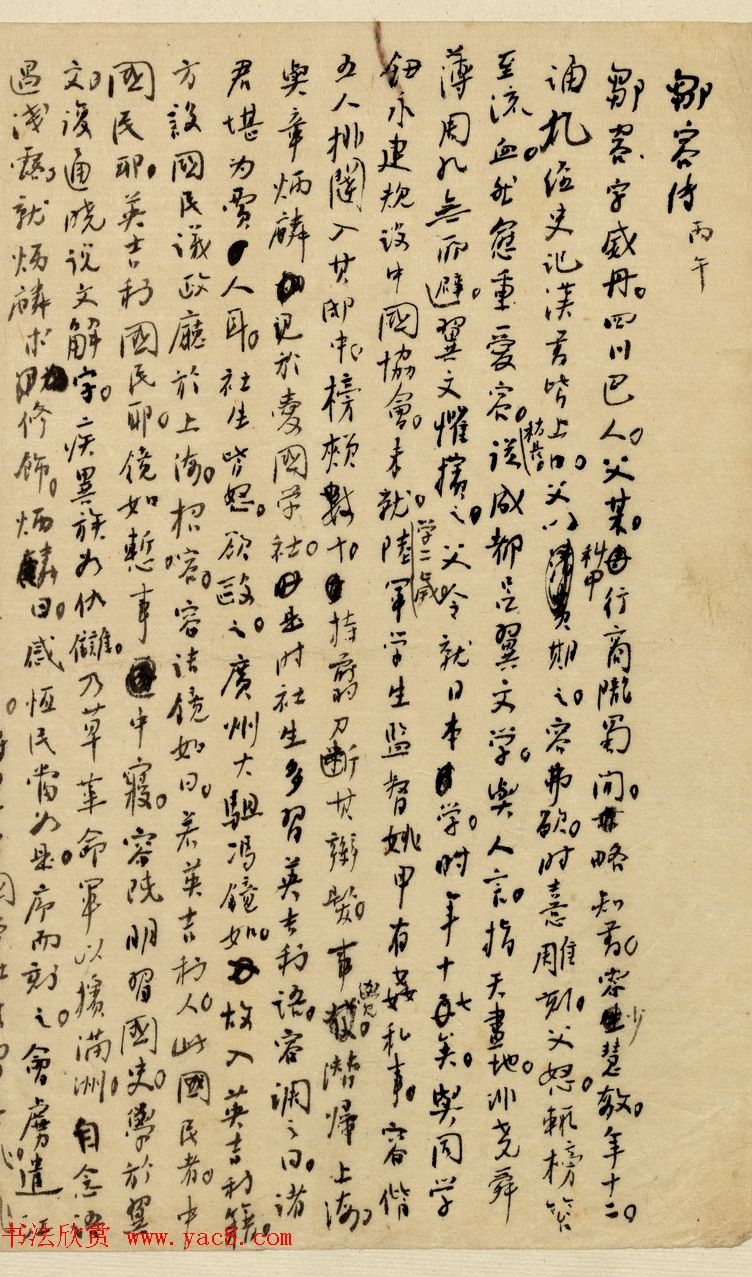 鄒容傳 丙午
鄒容字威丹。四川巴人。父某。行商隴蜀間。略知書。容少慧敏。年十二。
誦九經史記漢書皆上口。父以科甲期之。容弗欲。時憙雕刻。父怒。輒榜笞
至流血。然愈重愛容。從成都呂翼文學。與人言。指天畫地。非堯舜
薄周孔無所避。翼文懼。擯之。父令就日本學。時年十七矣。與同學
鈕永建規設中國協會。未就。學二歲陸軍學生監督姚甲有姦私事。容偕
五人排闥入其邸中。榜頰數十。持剪刀斷其辮髮。事覺。潛歸上海。
與章炳麟見於愛國學社。是時社生多習英吉利語。容調之曰。諸
君堪为賈人耳。社生皆怒。欲毆之。廣州大駔馮鏡如。故入英吉利籍。
方設國民議政廳於上海。招容。容詰鏡如曰。若英吉利人。此國民者。中
國民耶。英吉利國民耶。鏡如慙事中寢。容既明習國史。學於翼
文。復通曉說文解字。疾異族如仇讎。乃草革命軍以擯滿洲。自念語
過淺露。就炳麟求修飾。炳麟曰。感恆民當如是。序而刻之。會虜遣
书法欣赏 www.yac8.com